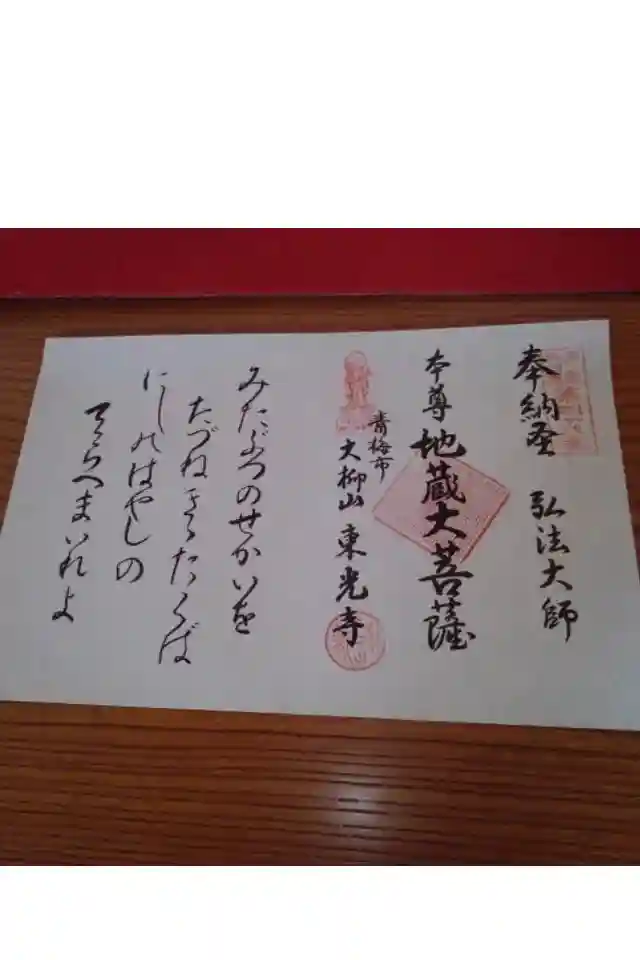 奉納圣 弘法大師
本尊 地蔵大菩薩
青梅市
大柳山 東光寺
みだぶつのせかいを
たづねきゝたくば
にしのはやしの
てらへまいれよ